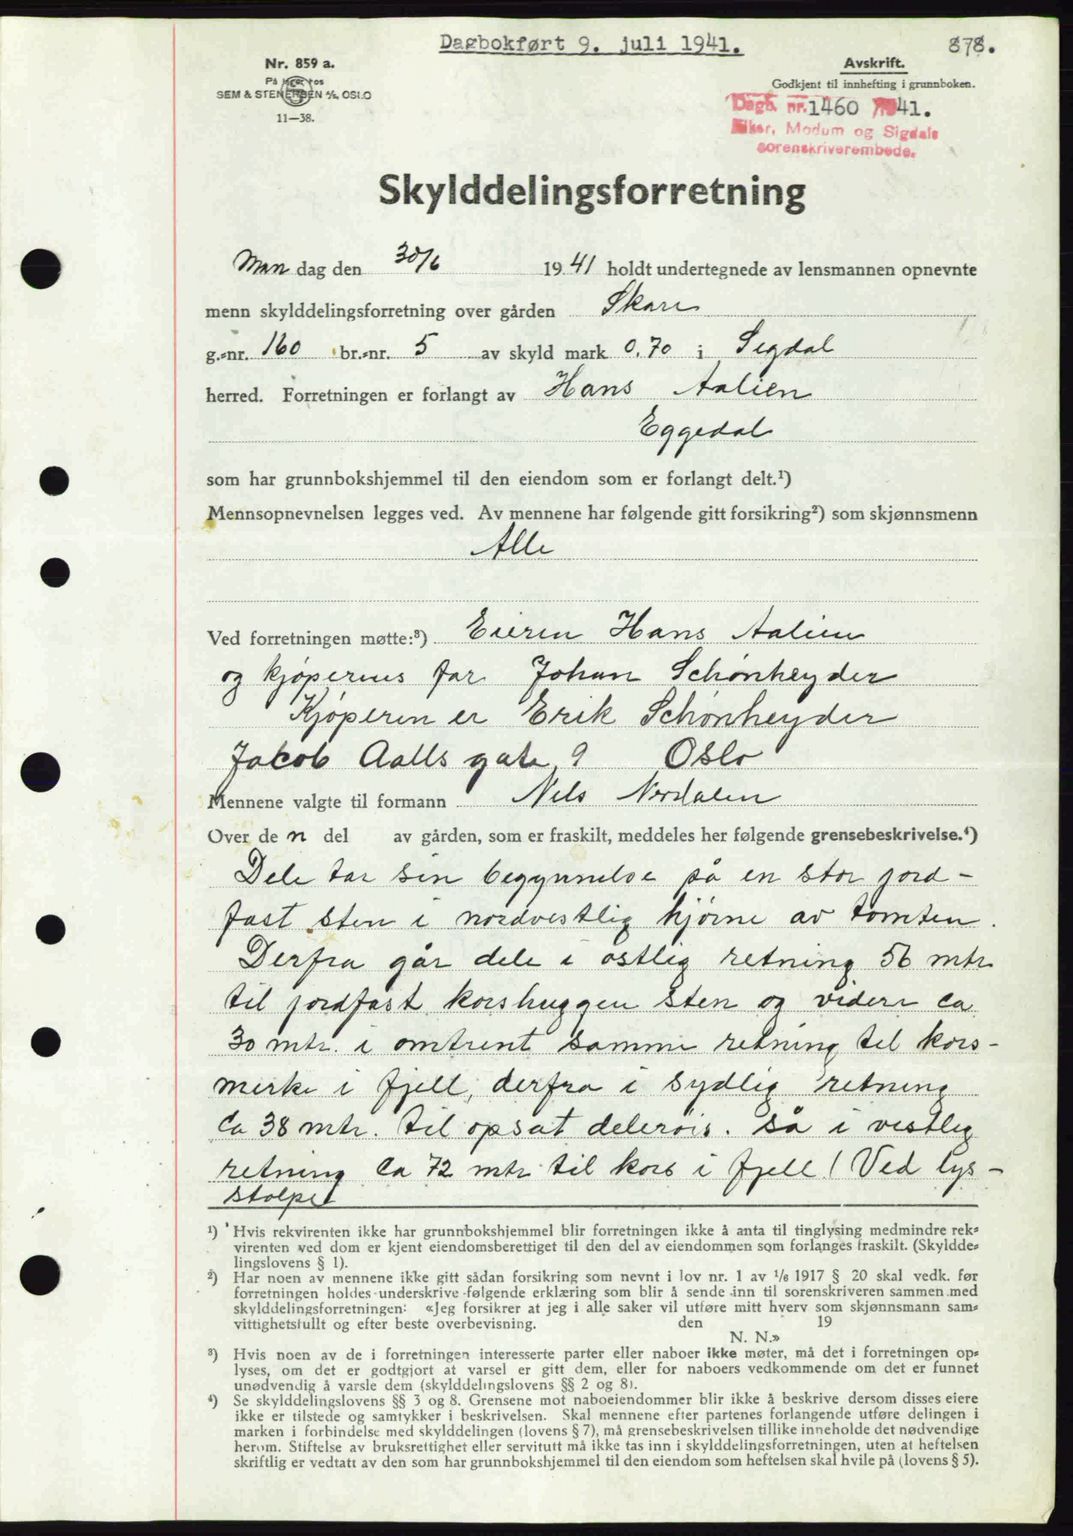 Dagbokført 9. juli 1941.
878.
Nr. 859 a.
På lager hos
SEM & STENERSEN A/S, OSLO
11—38.
Avskrift.
Godkjent til innhefting i grunnboken.
Dagb. nr. 1460 /1941.
Eiker, Modum og Sigdals
sorenskriverembede.
Skylddelingsforretning
Man dag den 30/6 1941 holdt undertegnede av lensmannen opnevnte
menn skylddelingsforretning over gården Skare
g.-nr. 160 br.-nr. 5 av skyld mark 0.70 i Sigdal
herred. Forretningen er forlangt av Hans Aalien
Eggedal
som har grunnbokshjemmel til den eiendom som er forlangt delt.¹)
Mennsopnevnelsen legges ved. Av mennene har følgende gitt forsikring²) som skjønnsmenn
Alle
Ved forretningen møtte:³) Eieren Hans Aalien
og kjøperens far Johan Schønheyder
Kjøperen er Erik Schønheyder
Jacob Aalls gate 9 Oslo
Mennene valgte til formann Nils Nordalen
Over den del av gården, som er fraskilt, meddeles her følgende grensebeskrivelse.⁴)
Dele tar sin begynnelse på en stor jord-
fast sten i nordvestlig hjörne av tomten.
Derfra går dele i østlig retning 56 mtr
til jordfast korshuggen sten og videre ca
30 mtr. i omtrent samme retning til kors-
merke i fjell, derfra i sydlig retning
ca 38 mtr. til opsat delerøis. Så i vestlig
retning ca 72 mtr til kors i fjell! Ved lys-
stolpe
¹) Hvis rekvirenten ikke har grunnbokshjemmel blir forretningen ikke å anta til tinglysing medmindre rek-
virenten ved dom er kjent eiendomsberettiget til den del av eiendommen som forlanges fraskilt. (Skyldde-
lingslovens § 1).
²) Har noen av mennene ikke gitt sådan forsikring som nevnt i lov nr. 1 av 1/6 1917 § 20 skal vedk. før
forretningen holdes underskrive følgende erklæring som blir å sende inn til sorenskriveren sammen med
skylddelingsforretningen: «Jeg forsikrer at jeg i alle saker vil utføre mitt hverv som skjønnsmann sam-
vittighetsfullt og efter beste overbevisning. den 19
N. N.»
³) Hvis noen av de i forretningen interesserte parter eller naboer ikke møter, må det i forretningen op-
lyses, om det er godtgjort at varsel er gitt dem, eller for naboers vedkommende om det er funnet
unødvendig å varsle dem (skylddelingslovens §§ 2 og 8).
⁴) Se skylddelingslovens §§ 3 og 8. Grensene mot naboeiendommer blir ikke å beskrive dersom disses eiere
ikke er tilstede og samtykker i beskrivelsen. Skal mennene efter partenes forlangende utføre delingen i
marken i forbindelse med skylddelingen (lovens § 7), må grensebeskrivelsen tillike inneholde det nødvendige
herom. Stiftelse av bruksrettighet eller servitutt må ikke tas inn i skylddelingsforretningen, uten at heftelsen
skriftlig er vedtatt av den som har grunnbokshjemmel til den eiendom som heftelsen skal hvile på (lovens § 5).